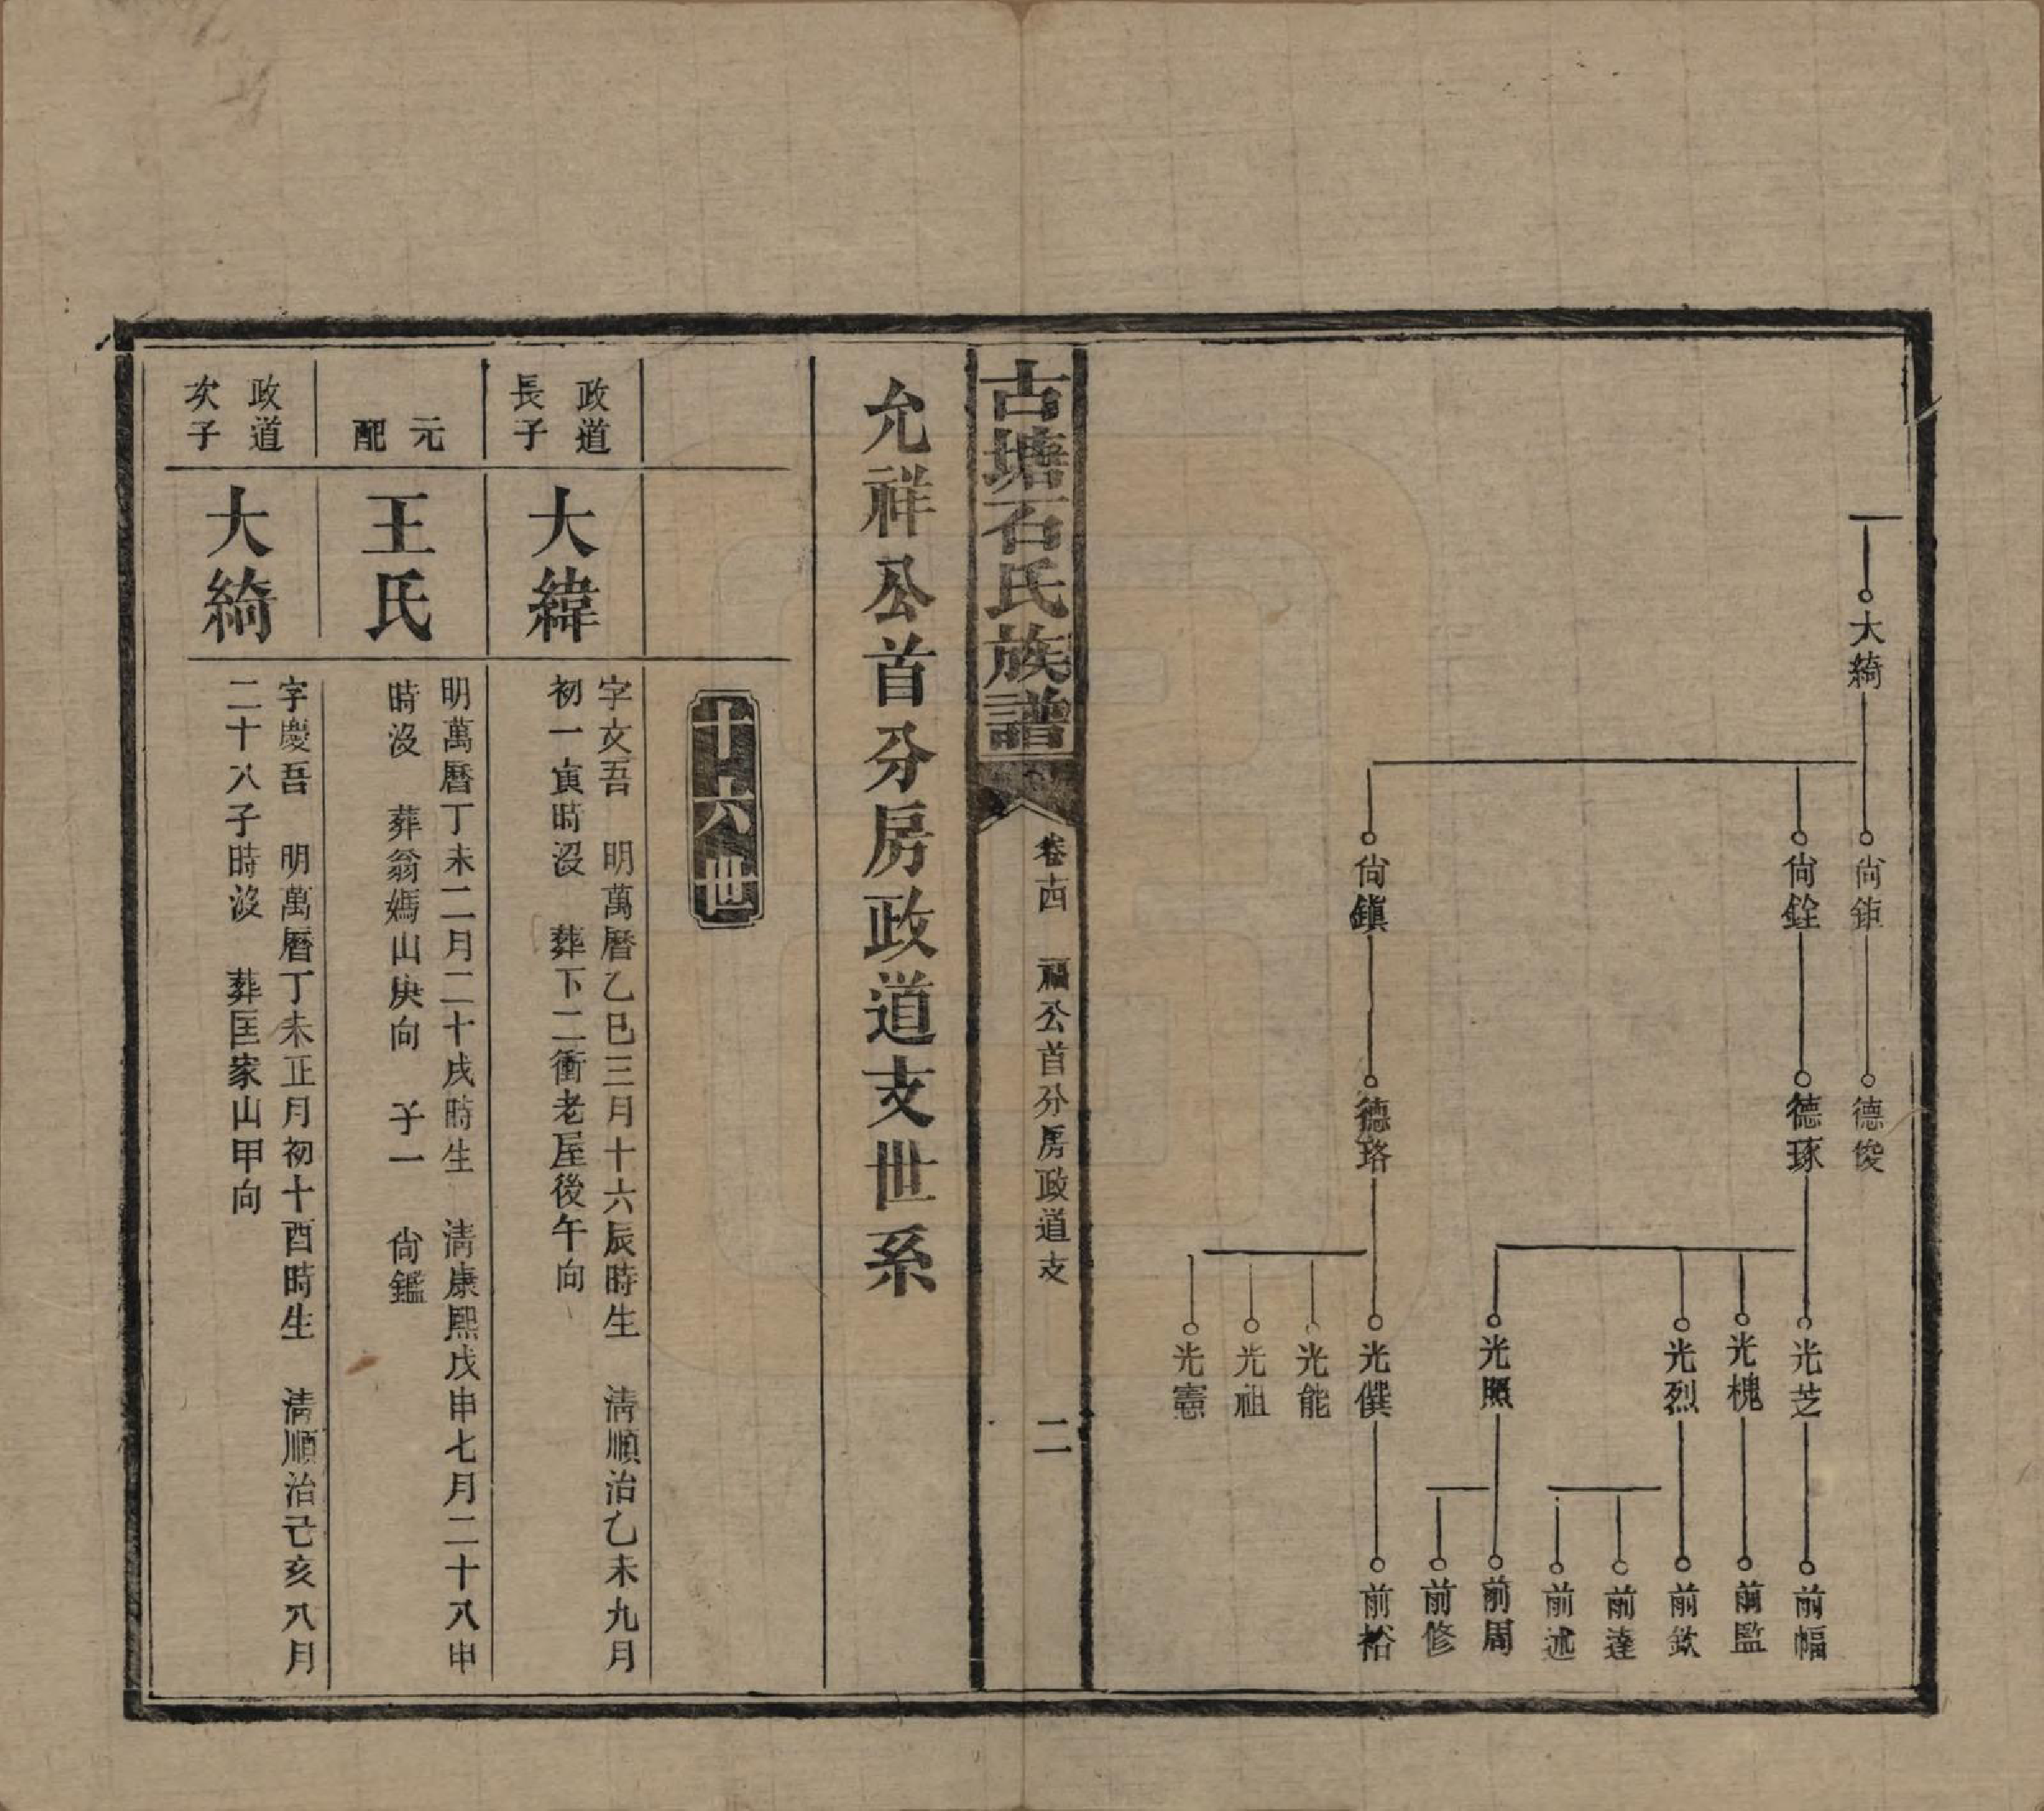 大綺
尙鉅
尙銓
尙鎭
德俊
德琢
德珞
光芝
光槐
光烈
光照
光僎
光能
光祖
光憲
前幅
前監
前欽
前達
前述
前周
前修
前裕
古塘石氏族譜
卷十四　福公首分房政道支
二
允祥公首分房政道支世系
十六世
政道
長子
大緯
字文吾　明萬曆乙巳三月十六辰時生　淸順治乙未九月
初一寅時沒　葬下二衝老屋後午向
元
配
王氏
明萬曆丁未二月二十戌時生　淸康熙戊申七月二十八申
時沒　葬翁媽山庚向　子一　尙鑑
政道
次子
大綺
字慶吾　明萬曆丁未正月初十酉時生　淸順治己亥八月
二十八子時沒　葬匡家山甲向